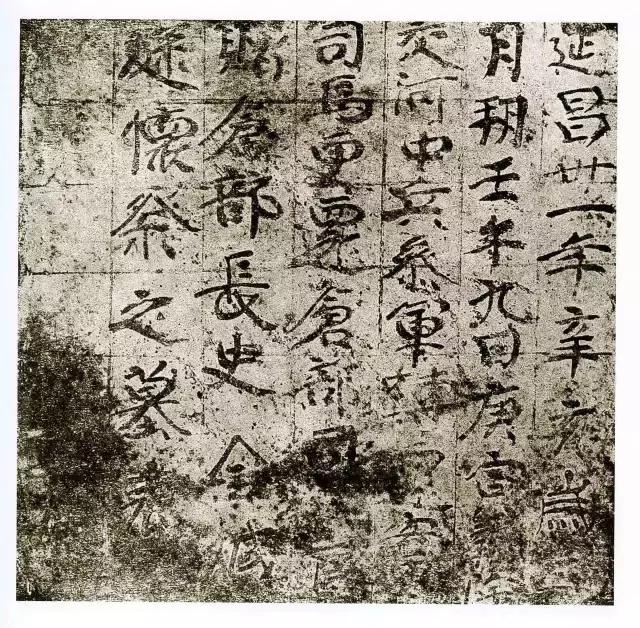 延昌卅一年辛亥歲
月朔壬午九日庚寅
交河中兵參軍轉
司馬更遷倉部司
贈倉部長史金城
麴懷祭之墓表